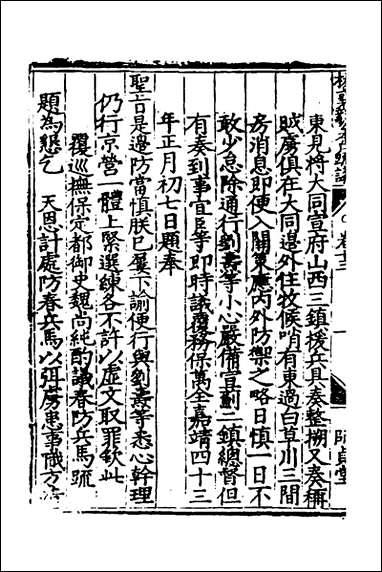 東見將大同宣府山西三鎮援兵具奏整搠又奏稱
賊虜俱在大同邊外住牧候哨有東過白草川三間
房消息即便入關策應內外防禦之略日慎一日不
敢少怠除通行劉燾等小心嚴備宣薊二鎮總督但
有奏到事宜臣等即時議覆務保萬全嘉靖四十三
年正月初七日題奉
聖旨是邊防當慎朕已屢下諭便行與劉燾等悉心幹理
仍行京營一體上緊選練各不許以虛文取罪欽此
覆巡撫保定都御史魏尚純酌議春防兵馬疏
題為懇乞 天恩計處防春兵馬以弭虜患事職方
卷十三
一